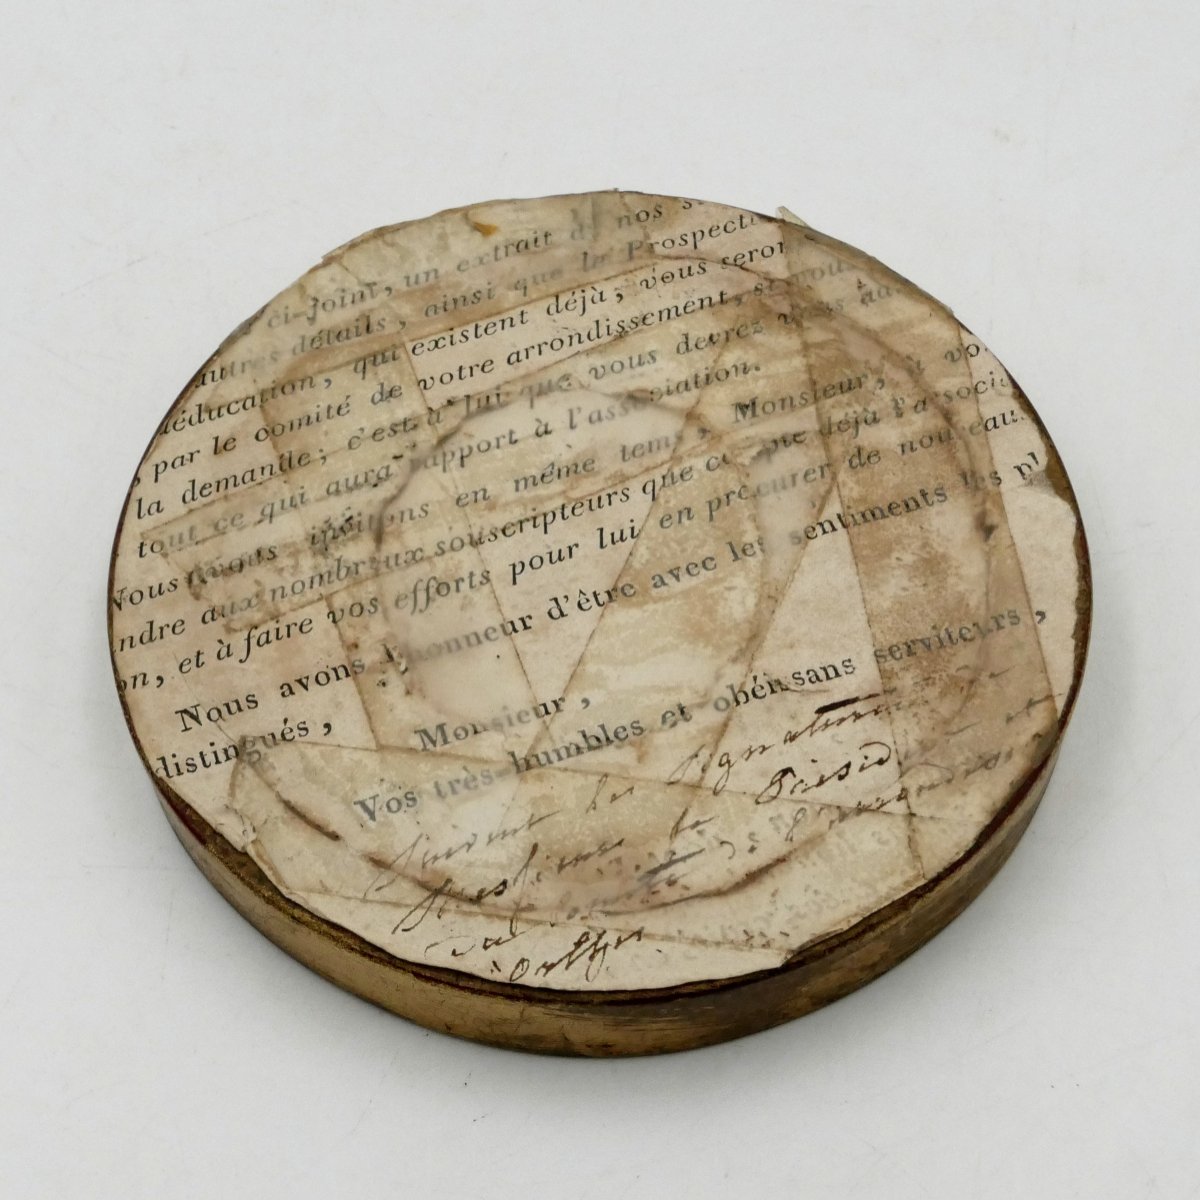 ci-joint, un extrait de nos
autres détails, ainsi que le Prospectu
'éducation, qui existent déjà; vous seron
, par le comité de votre arrondissement, si vous
la demande; c'est à lui que vous devrez vous ad
tout ce qui aura rapport à l'association.
Nous vous invitons en même tems, Monsieur, à vo
indre aux nombreux souscripteurs que compte déjà l'a soci
on, et à faire vos efforts pour lui en procurer de nouveau
Nous avons l'honneur d'être avec les sentiments les pl
distingués,
Monsieur,
Vos très-humbles et obéissans serviteurs,
Suivent les Signatures
Messieurs le Présid
du Comité
Orthez